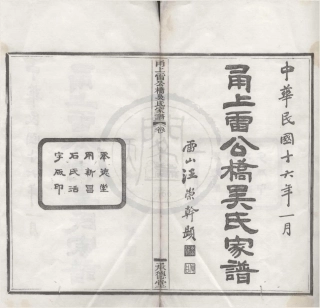 中華民國十六年一月
甬上雷公橋吳氏家譜
雷山汪崇幹題
甬上雷公橋吳氏家譜
承德堂
承德堂
用新昌
石氏活
字版印